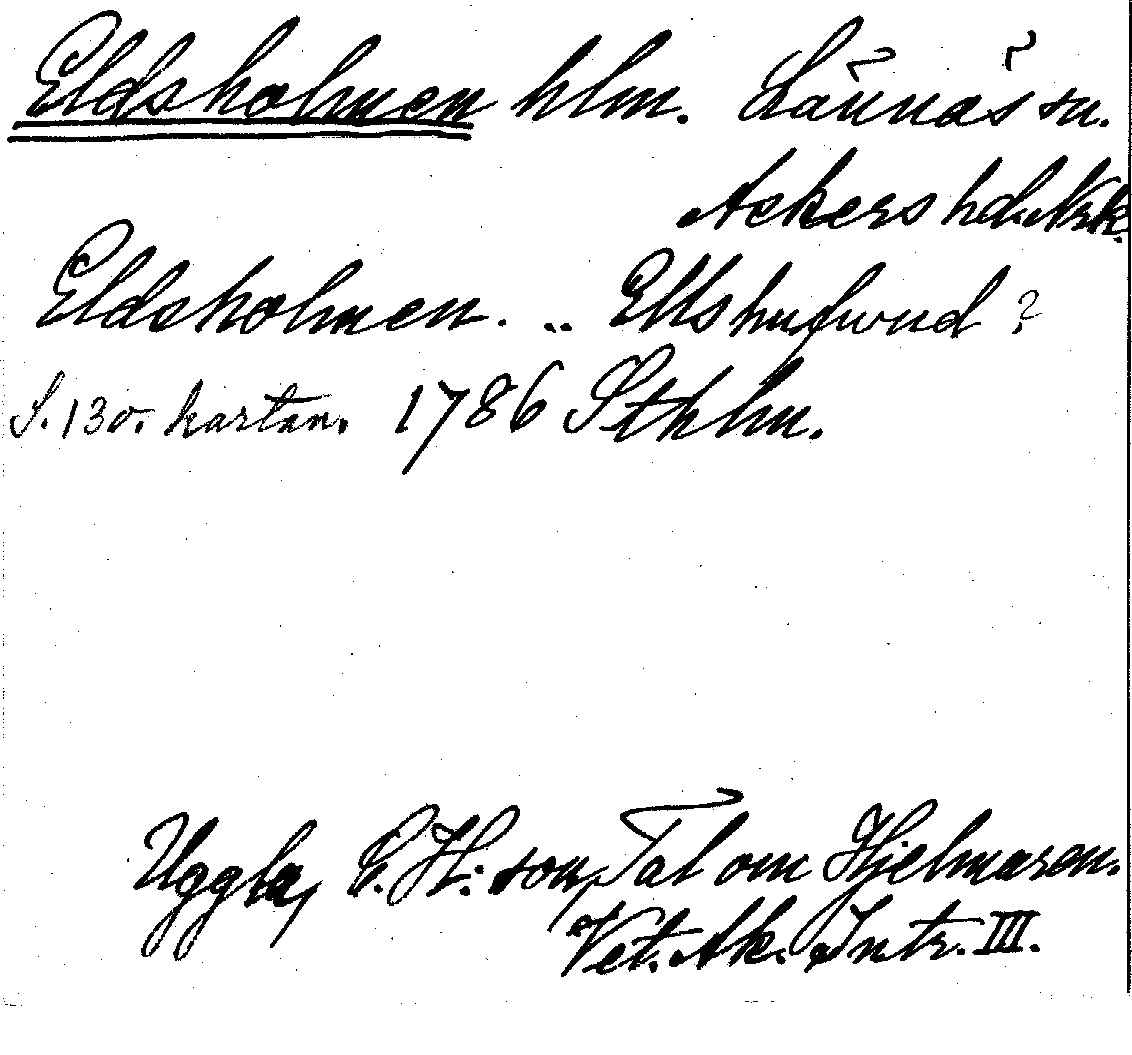 Eldsholmen hlm. Lännäs sn.
Askers hd. Nrk.
Eldsholmen. .. Ellshufwud ?
S. 130. kartan. 1786 Sthlm.
Uggla, C. H:son, Tal om Hjelmaren.
Vet. Ak. Intr. III.